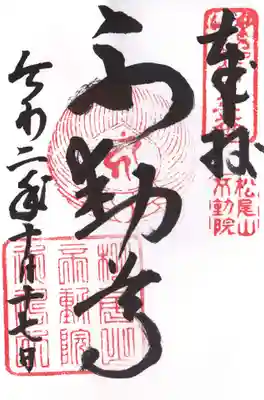 奉拝
松尾山
不動院
不動尊
令和二年十月十七日
松尾山
不動院